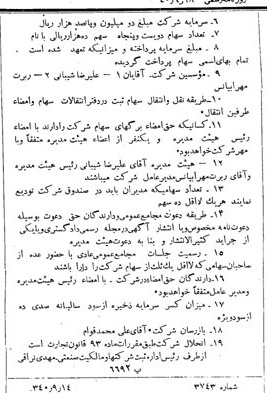 ۶ـ سرمایه شرکت مبلغ دو میلیون وپانصد هزار ریال
۷ـ تعداد سهام دویست وپنجاه سهم ده هزار ریالی با نام
۸ـ مبلغ سرمایه پرداخته و میزانیکه تعهد شده است .
تمام بهای اسمی سهام پرداخت گردیده
۹ـ مؤسسین شرکت. آقایان ۱ـ علیرضا شیبانی ۲ـ ربرت
مهرابیانس
۱۰ـ طریقه نقل وانتقال سهام ثبت دردفتر انتقالات سهام وامضاء
طرفین انتقال.
۱۱ـ کسانیکه حق امضاء برگهای سهام شرکت رادارند با امضاء
رئیس هیئت مدیره و یکنفر از اعضاء هیئت مدیره متفقاً وبا
مهرشرکت خواهدبود.
۱۲ـ هیئت مدیره آقای علیرضا شیبانی رئیس هیئت مدیره
وآقای ربرت مهرابیانس مدیرعامل شرکت میباشند
۱۳ـ تعداد سهامیکه مدیران باید در صندوق شرکت تودیع
نمایند هریك لااقل ده سهم
۱۴ـ طریقه دعوت مجامع عمومی ودارندگان حق دعوت بوسیله
دعوت نامه مخصوص ویا انتشار آگهی درمجله رسمی دادگستری ویکی
از جراید کثیرالانتشار و بنا به دعوت هیئت مدیره
۱۵ـ رسمیت جلسات مجامع عمومی عادی با حضور عده از
صاحبان سهامی که لااقل یك ثلث از سهام شرکت را دارا باشند
۱۶ـ دارندگان حق امضاء در شرکت ـ با امضاء رئیس هیئت مدیره
ومدیر عامل متفقاً خواهدبود.
۱۷ـ میزان کسر سرمایه ذخیره از سود سالیانه صدی ده
از سود ویژه
۱۸ـ بازرسان شرکت. آقای علی محمد قوام
۱۹ـ انحلال شرکت طبق مقررات ماده ۹۳ قانون تجارت است
از طرف رئیس اداره ثبت شرکتها ومالکیت صنعتی. مهدی نراقی
ب ۶۶۹۲
شماره ۳۷۴۳ ۱۴ر۹ر۳۴۰